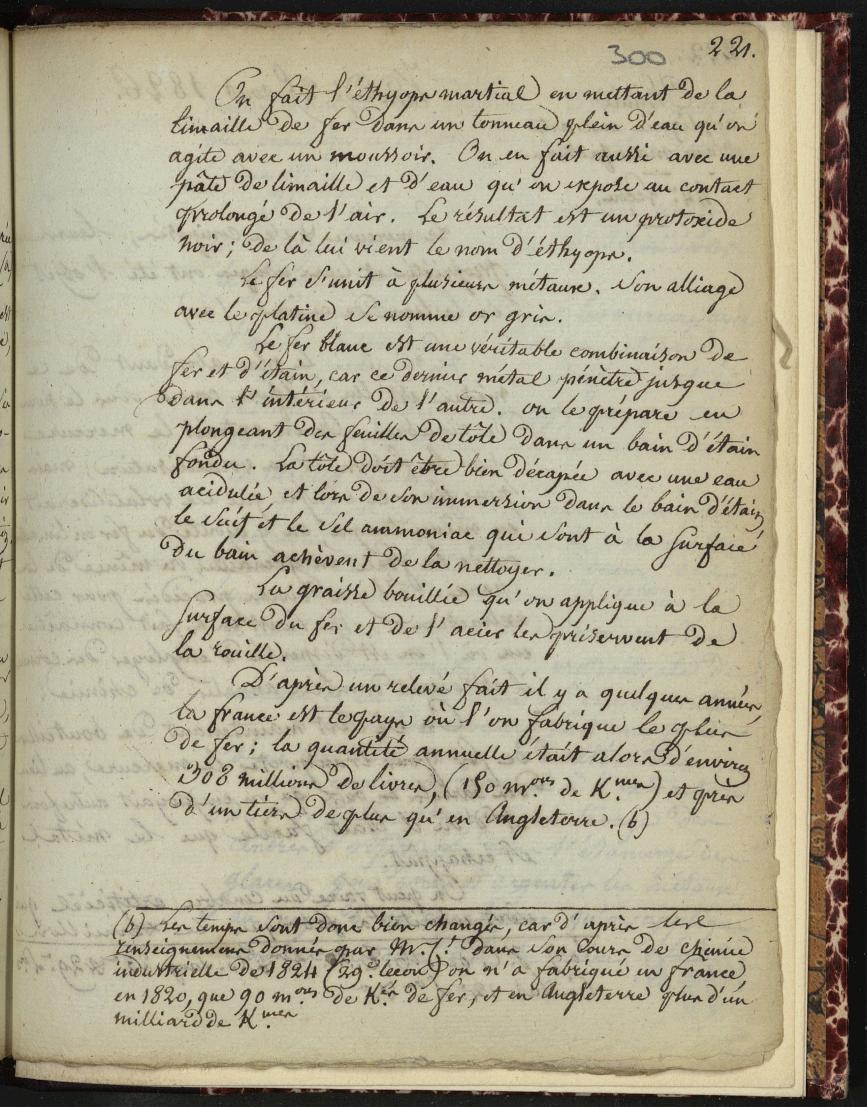 300 221.
On fait l'éthyops martial en mettant de la
limaille de fer dans un tonneau plein d'eau qu'on
agite avec un moussoir. On en fait aussi avec une
pâte de limaille et d'eau qu'on expose au contact
prolongé de l'air. Le résultat est un protoxide
noir; de là lui vient le nom d'éthyops.
Le fer s'unit à plusieurs métaux. Son alliage
avec le platine se nomme or gris.
Le fer blanc est une véritable combinaison de
fer et d'étain, car ce dernier métal pénètre jusque
dans l'intérieur de l'autre. on le prépare en
plongeant des feuilles de tôle dans un bain d'étain
fondu. La tôle doit être bien décapée avec une eau
acidulée et lors de son immersion dans le bain d'étain,
le suif et le sel ammoniac qui sont à la surface
du bain achèvent de la nettoyer.
La graisse bouillie qu'on applique à la
surface du fer et de l'acier les préservent de
la rouille.
D'après un relevé fait il y a quelques années,
la france est le pays où l'on fabrique le plus
de fer; la quantité annuelle était alors d'environ
308 millions de livres, (150 m.ons de K.mes) et près
d'un tiers de plus qu'en Angleterre. (b)
(b) Les temps sont donc bien changés, car d'après les
renseignemens donnés par M. dans son Cours de chimie
industrielle de 1824 (29.e lecon) on n'a fabriqué en france
en 1820, que 90 m.ons de K.es de fer, et en Angleterre plus d'un
milliard de K.mes